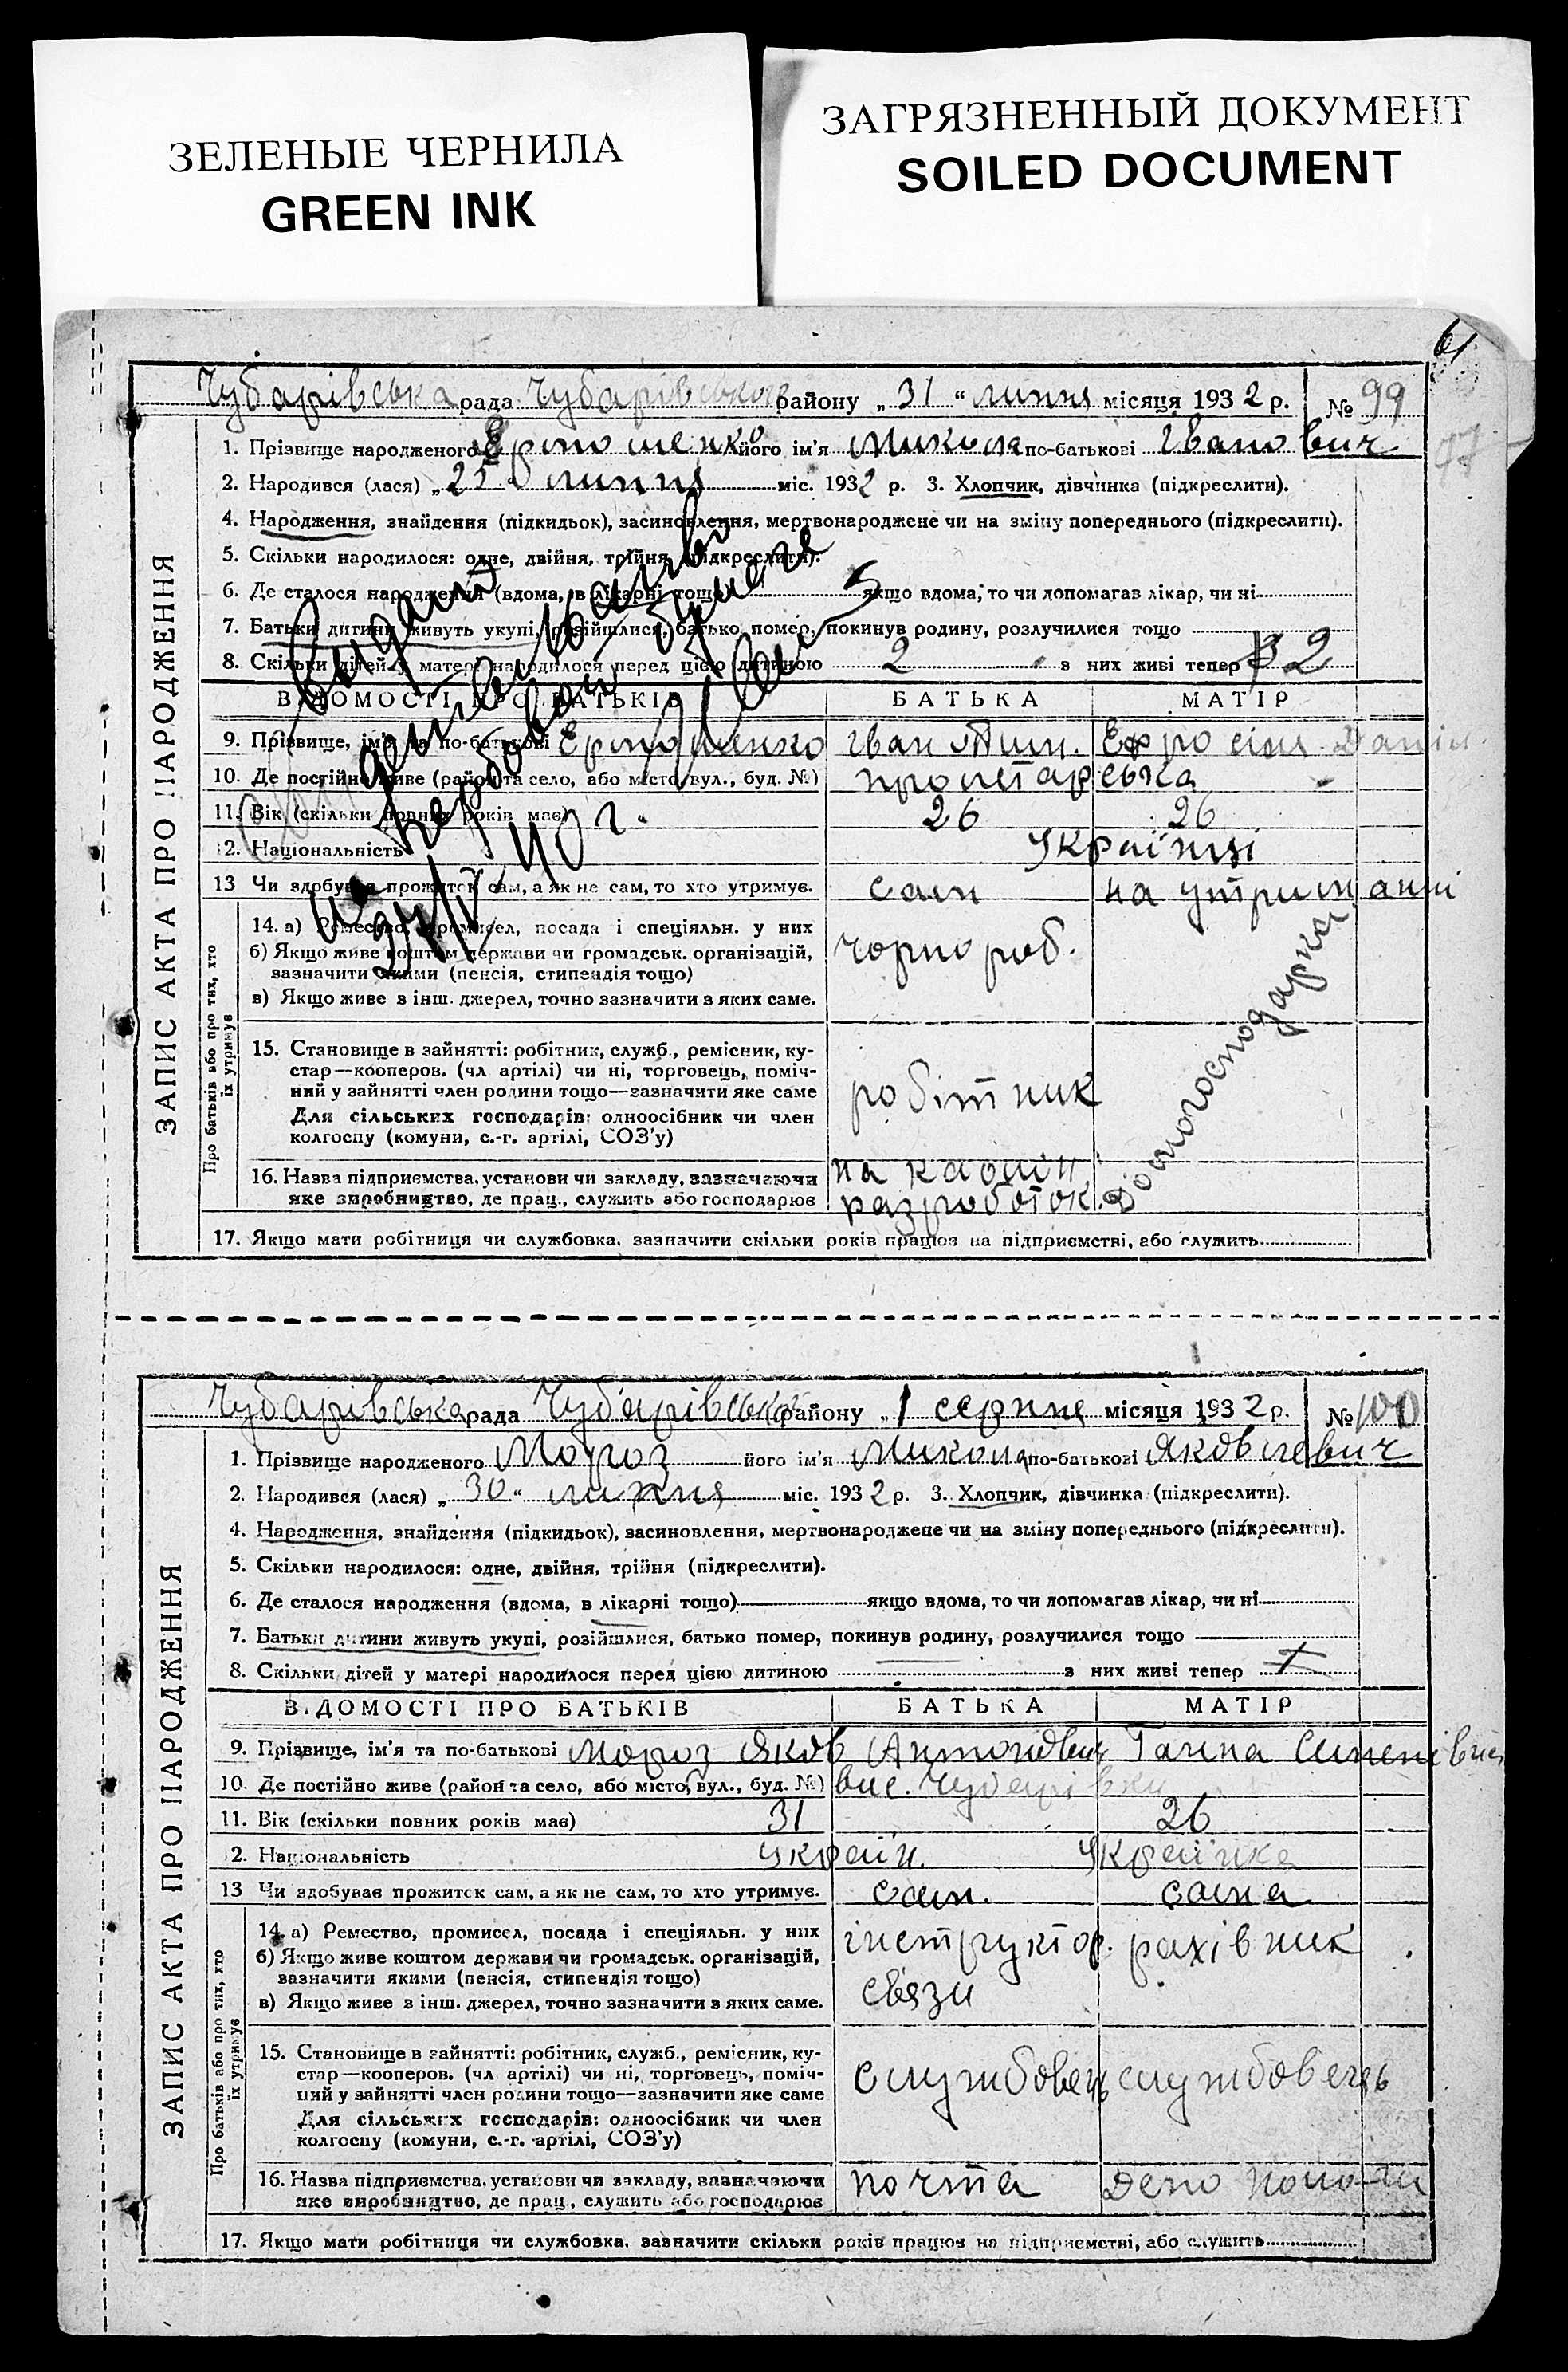 ЗЕЛЕНЫЕ ЧЕРНИЛА
GREEN INK
ЗАГРЯЗНЕННЫЙ ДОКУМЕНТ
SOILED DOCUMENT
61
Чубарівська рада Чубарівського району „31“ липня місяця 1932 р. № 99
77
1. Прізвище народженого Єрмошенко його ім'я Микола по-батькові Іванович
2. Народився (лася) „25“ липня міс. 1932 р. 3. Хлопчик, дівчинка (підкреслити).
4. Народження, знайдення (підкидьок), засиновлення, мертвонароджене чи на зміну попереднього (підкреслити).
5. Скільки народилося: одне, двійня, трійня (підкреслити).
6. Де сталося народження (вдома, в лікарні тощо) якщо вдома, то чи допомагав лікар, чи ні
7. Батьки дитини живуть укупі, розійшлися, батько помер, покинув родину, розлучилися тощо
8. Скільки дітей у матері народилося перед цією дитиною 2 з них живі тепер 2
ВІДОМОСТІ ПРО БАТЬКІВ БАТЬКА МАТІР
9. Прізвище, ім'я та по-батькові Єрмошенко Іван
10. Де постійно живе (район та село, або місто, вул., буд. №) пролетарська
11. Вік (скільки повних років має) 26 26
12. Національність Українці
13 Чи здобував прожиток сам, а як не сам, то хто утримує. сам на утриманні
14. а) Ремество, промисел, посада і спеціяльн. у них
б) Якщо живе коштом держави чи громадськ. організацій,
зазначити якими (пенсія, стипендія тощо)
в) Якщо живе з інш. джерел, точно зазначити з яких саме.
чорнороб.
Домогосподарка
15. Становище в зайнятті: робітник, служб., ремісник, ку-
стар—кооперов. (чл артілі) чи ні, торговець, поміч-
ний у зайнятті член родини тощо—зазначити яке саме
Для сільських господарів: одноосібник чи член
колгоспу (комуни, с.-г. артілі, СОЗ'у)
робітник
16. Назва підприємства, установи чи закладу, зазначаючи на каолін
яке виробництво, де прац., служить або господарює разработок.
17. Якщо мати робітниця чи службовка, зазначити скільки років працює на підприємстві, або служить
ЗАПИС АКТА ПРО НАРОДЖЕННЯ
Про батьків або про тих, хто
їх утримує
Видано
27/IV 40 г.
Чубарівська рада Чубарівського району „1 серпня місяця 1932 р. № 100
1. Прізвище народженого Мороз його ім'я Микола по-батькові Яковлевич
2. Народився (лася) „30“ липня міс. 1932 р. 3. Хлопчик, дівчинка (підкреслити).
4. Народження, знайдення (підкидьок), засиновлення, мертвонароджене чи на зміну попереднього (підкреслити).
5. Скільки народилося: одне, двійня, трійня (підкреслити).
6. Де сталося народження (вдома, в лікарні тощо) якщо вдома, то чи допомагав лікар, чи ні
7. Батьки дитини живуть укупі, розійшлися, батько помер, покинув родину, розлучилися тощо
8. Скільки дітей у матері народилося перед цією дитиною з них живі тепер
ВІДОМОСТІ ПРО БАТЬКІВ БАТЬКА МАТІР
9. Прізвище, ім'я та по-батькові Мороз Яков Антонович Ганна Семенівна
10. Де постійно живе (район та село, або місто, вул., буд. №) вис. Чубарівка
11. Вік (скільки повних років має) 31 26
12. Національність україн. Українка
13 Чи здобував прожиток сам, а як не сам, то хто утримує. сам. сама
14. а) Ремество, промисел, посада і спеціяльн. у них
б) Якщо живе коштом держави чи громадськ. організацій,
зазначити якими (пенсія, стипендія тощо)
в) Якщо живе з інш. джерел, точно зазначити з яких саме.
інструктор. рахівник
связи
15. Становище в зайнятті: робітник, служб., ремісник, ку-
стар—кооперов. (чл артілі) чи ні, торговець, поміч-
ний у зайнятті член родини тощо—зазначити яке саме
Для сільських господарів: одноосібник чи член
колгоспу (комуни, с.-г. артілі, СОЗ'у)
службовець службовець
16. Назва підприємства, установи чи закладу, зазначаючи
яке виробництво, де прац., служить або господарює
почта Депо
17. Якщо мати робітниця чи службовка, зазначити скільки років працює на підприємстві, або служить
ЗАПИС АКТА ПРО НАРОДЖЕННЯ
Про батьків або про тих, хто
їх утримує